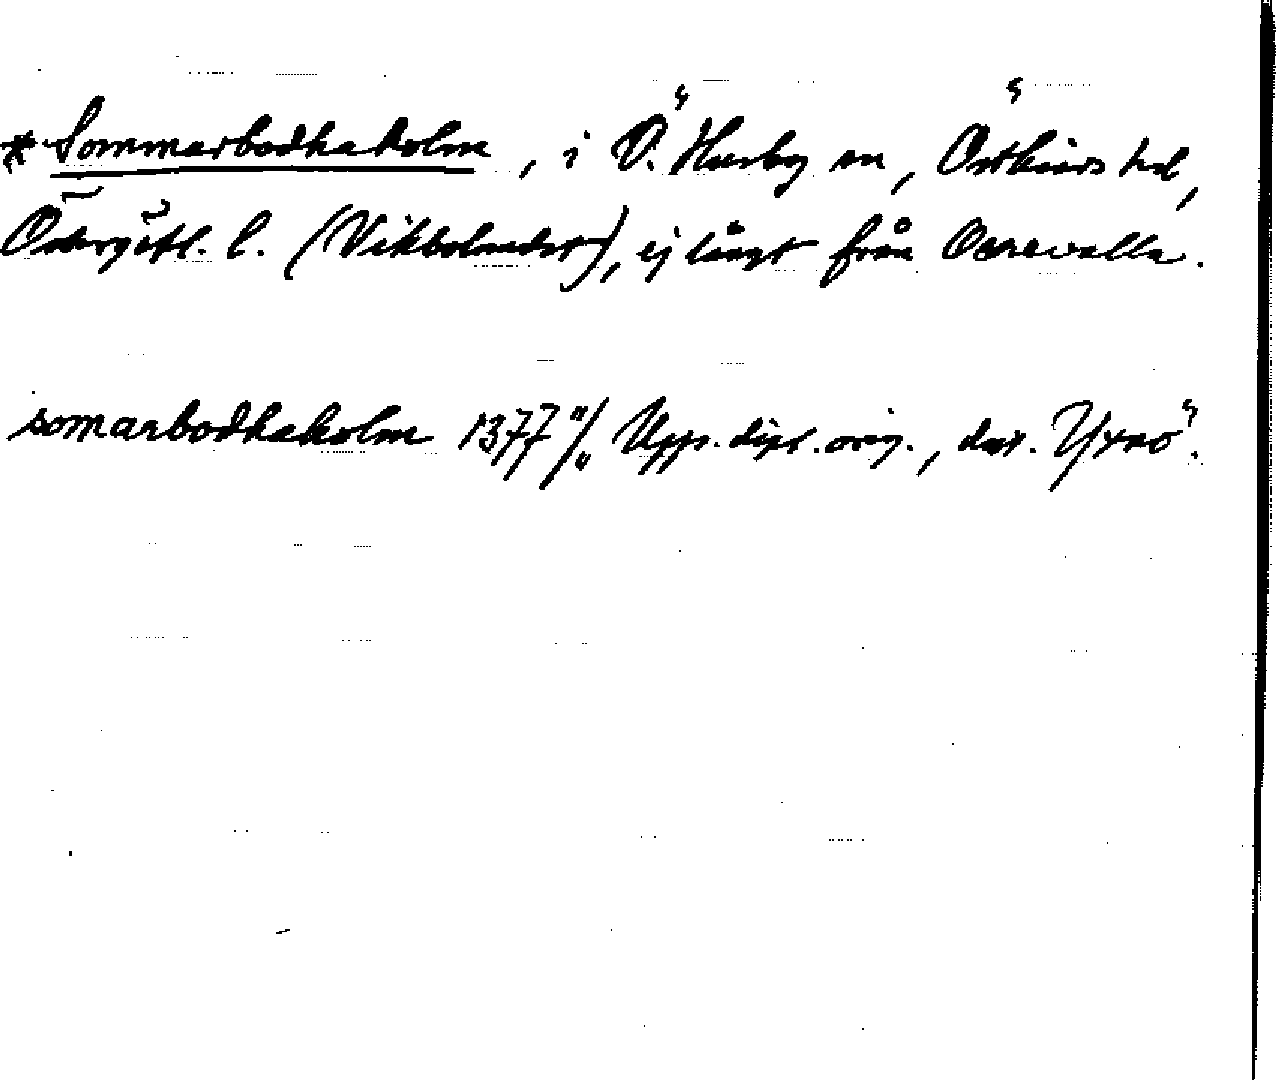 * Sommarbodhaholm, i Ö. Husby sn, Östkinds hd,
Östergötl. l. (Vikbolandet), ej långt från Oserevalla.
somarbodhaholm 1377 11/11 Upps. dipl. orig., dat. Yxnö.